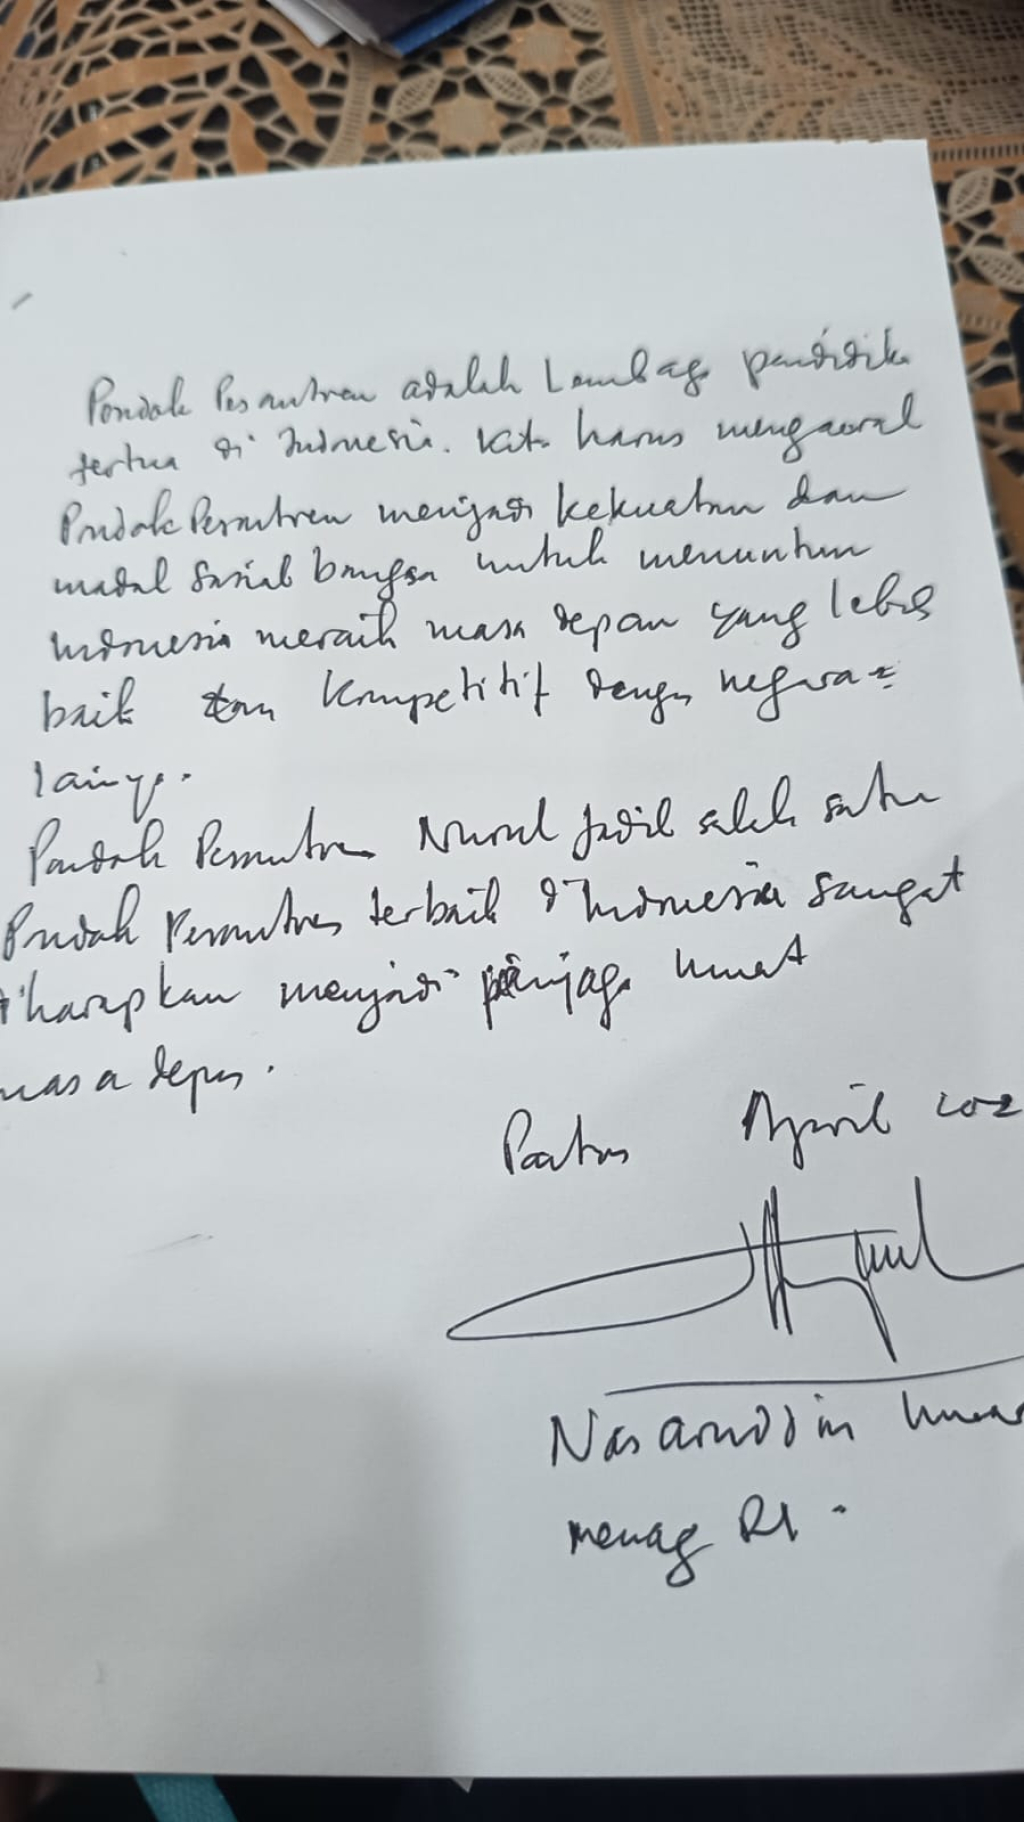 Pondok Pesantren adalah Lembaga pendidika
tertua di Indonesia. Kita harus mengawal
Pondok Pesantren menjadi kekuatan dan
modal sosial bangsa untuk menuntun
Indonesia meraih masa depan yang lebih
baik dan kompetitif dengan negara-2
lainya.
Pondok Pesantren Nurul Jadid salah satu
Pondok Pesantren terbaik di Indonesia sangat
diharapkan menjadi penjaga umat
masa depan.
Paiton April 202
Nasaruddin Umar
Menag RI.